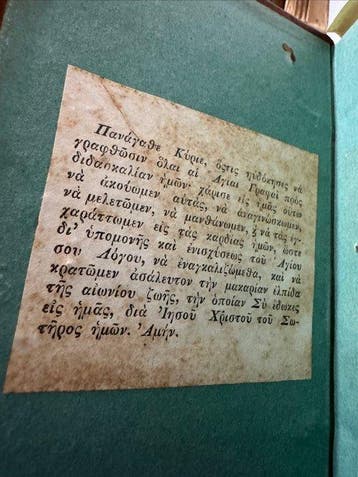 Πανάγαθε Κύριε, ὅςτις ηὐδόκησες νὰ
γραφθῶσιν ὅλαι αἱ Ἅγιαι Γραφαὶ πρὸς
διδασκαλίαν ἡμῶν· χάρισε εἰς ἡμᾶς οὕτω
νὰ ἀκούωμεν αὐτὰς, νὰ ἀναγινώσκωμεν,
νὰ μελετῶμεν, νὰ μανθάνωμεν, ϗ νὰ τὰς ἐγ-
χαράττωμεν εἰς τὰς καρδίας ἡμῶν, ὥστε
δι' ὑπομονῆς καὶ ἐνισχύσεως τοῦ Ἁγίου
σου Λόγου, νὰ ἐναγκαλιζώμεθα, καὶ νὰ
κρατῶμεν ἀσάλευτον τὴν μακαρίαν ἐλπίδα
τῆς αἰωνίου ζωῆς, τὴν ὁποίαν Σὺ ἔδωκες
εἰς ἡμᾶς, διὰ Ἰησοῦ Χριστοῦ τοῦ Σω-
τῆρος ἡμῶν. Ἀμήν.